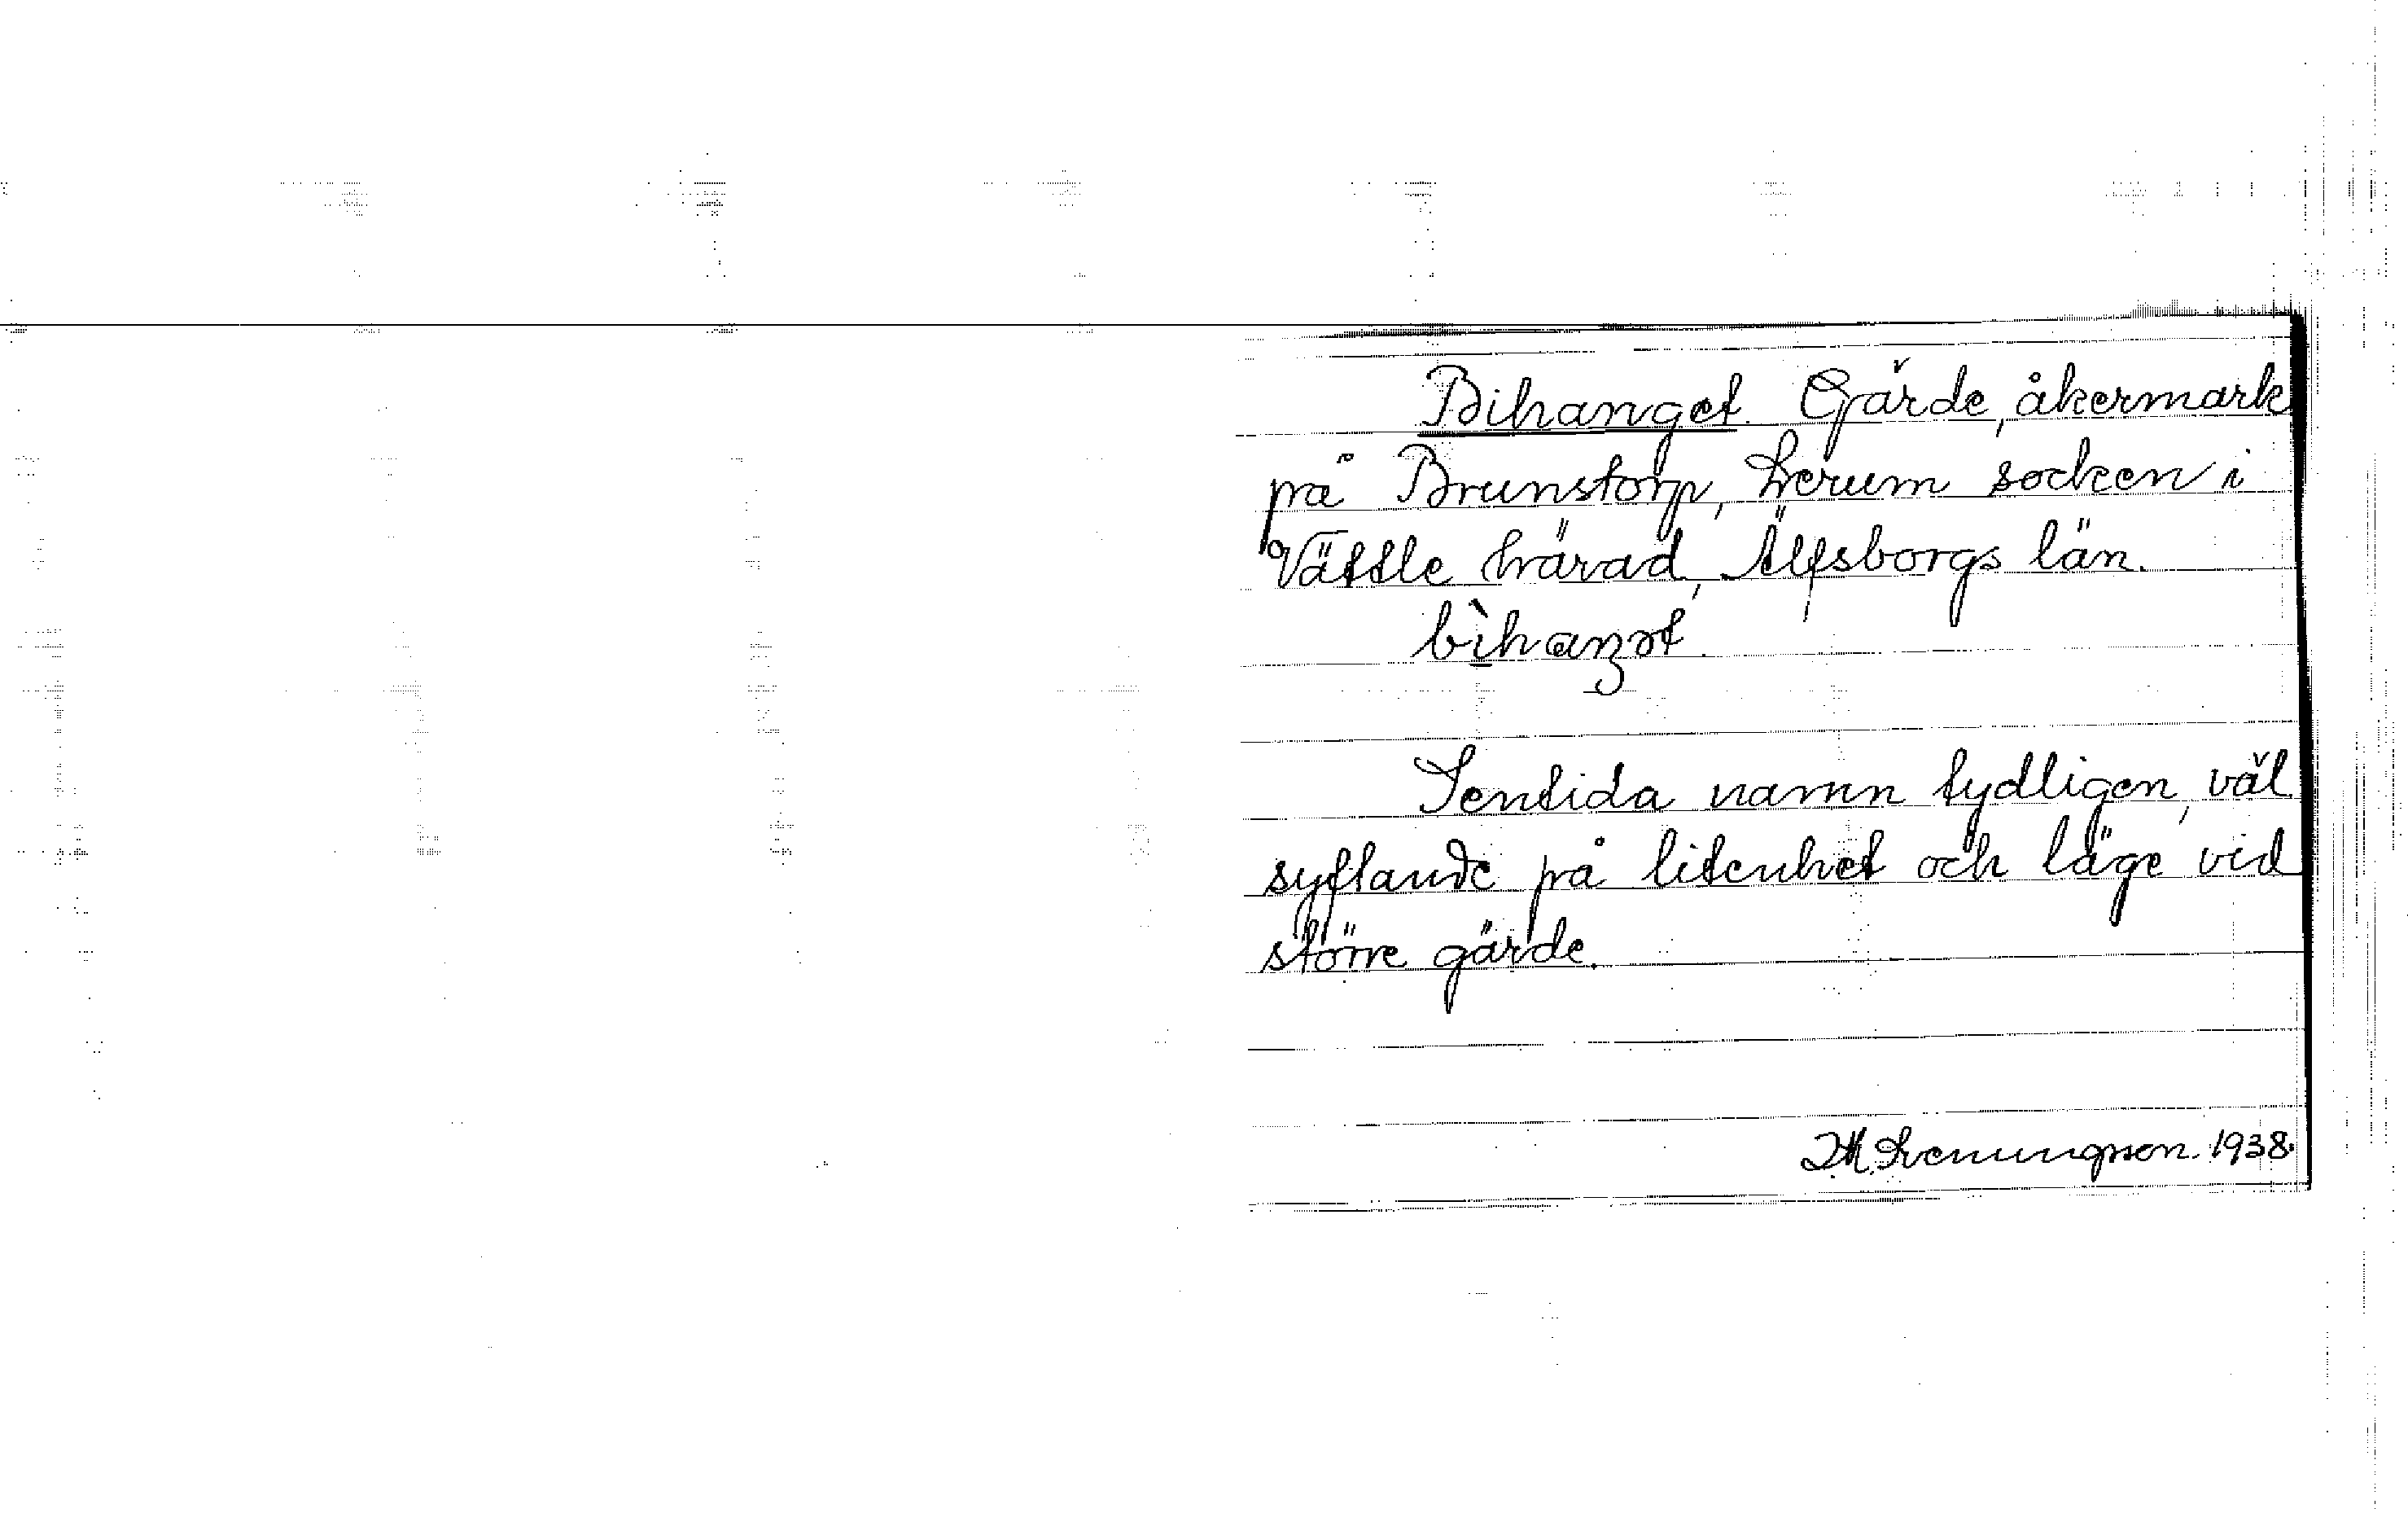 Bihanget. Gärde, åkermark
på Brunstorp, Lerum socken i
Vättle härad, Älfsborgs län.
bìhaŋət.
Sentida namn tydligen, väl
syftande på litenhet och läge vid
större gärde.
1938.